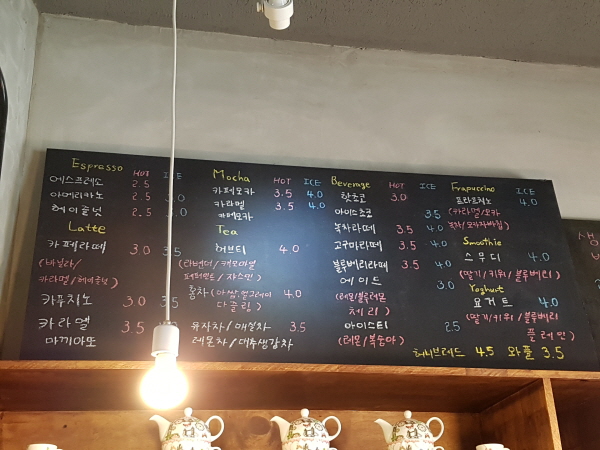 Espresso HOT ICE
에스프레소 2.5
아메리카노 2.5 3.0
헤이즐넛 2.5 3.0
Latte
카페라떼 3.0 3.5
(바닐라/
카라멜/헤이즐넛)
카푸치노 3.0 3.5
카라멜 3.5
마끼아또
Mocha HOT ICE
카페모카 3.5 4.0
카라멜 3.5 4.0
카페모카
Tea
허브티 4.0
(라벤더/캐모마일
페퍼민트/자스민)
홍차(아쌈.얼그레이 4.0
다즐링)
유자차/매실차 3.5
레몬차/대추생강차
Beverage HOT ICE
핫초코 3.0
아이스초코 3.5
녹차라떼 3.5 4.0
고구마라떼 3.5 4.0
블루베리라떼 3.5 4.0
에이드 3.0
(레몬/블루레몬
체리)
아이스티 2.5
(레몬/복숭아)
Frapuccino ICE
프라푸치노 4.0
(카라멜/모카
녹차/모카자바칩)
Smoothie
스무디 4.0
(딸기/키위/블루베리)
Yoghurt
요거트 4.0
(딸기/키위/블루베리
플레인)
허니브레드 4.5 와플 3.5